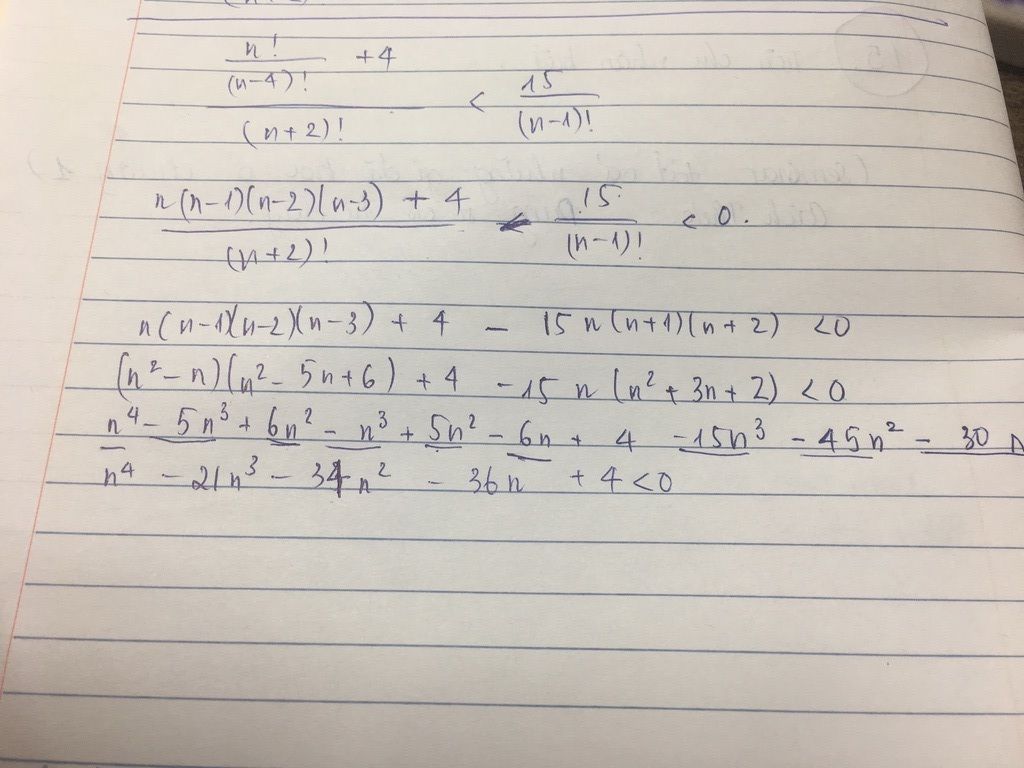 n! / (n-4)! + 4 / (n+2)! < 15 / (n-1)!
n(n-1)(n-2)(n-3) + 4 / (n+2)! - 15 / (n-1)! < 0.
n(n-1)(n-2)(n-3) + 4 - 15n(n+1)(n+2) <0
(n²-n)(n²-5n+6) + 4 -15 n (n²+3n+2) <0
n⁴-5n³+6n²-n³+5n²-6n+ 4 -15n³ -45n² -30n
n⁴ -21n³ -34n² - 36n + 4<0